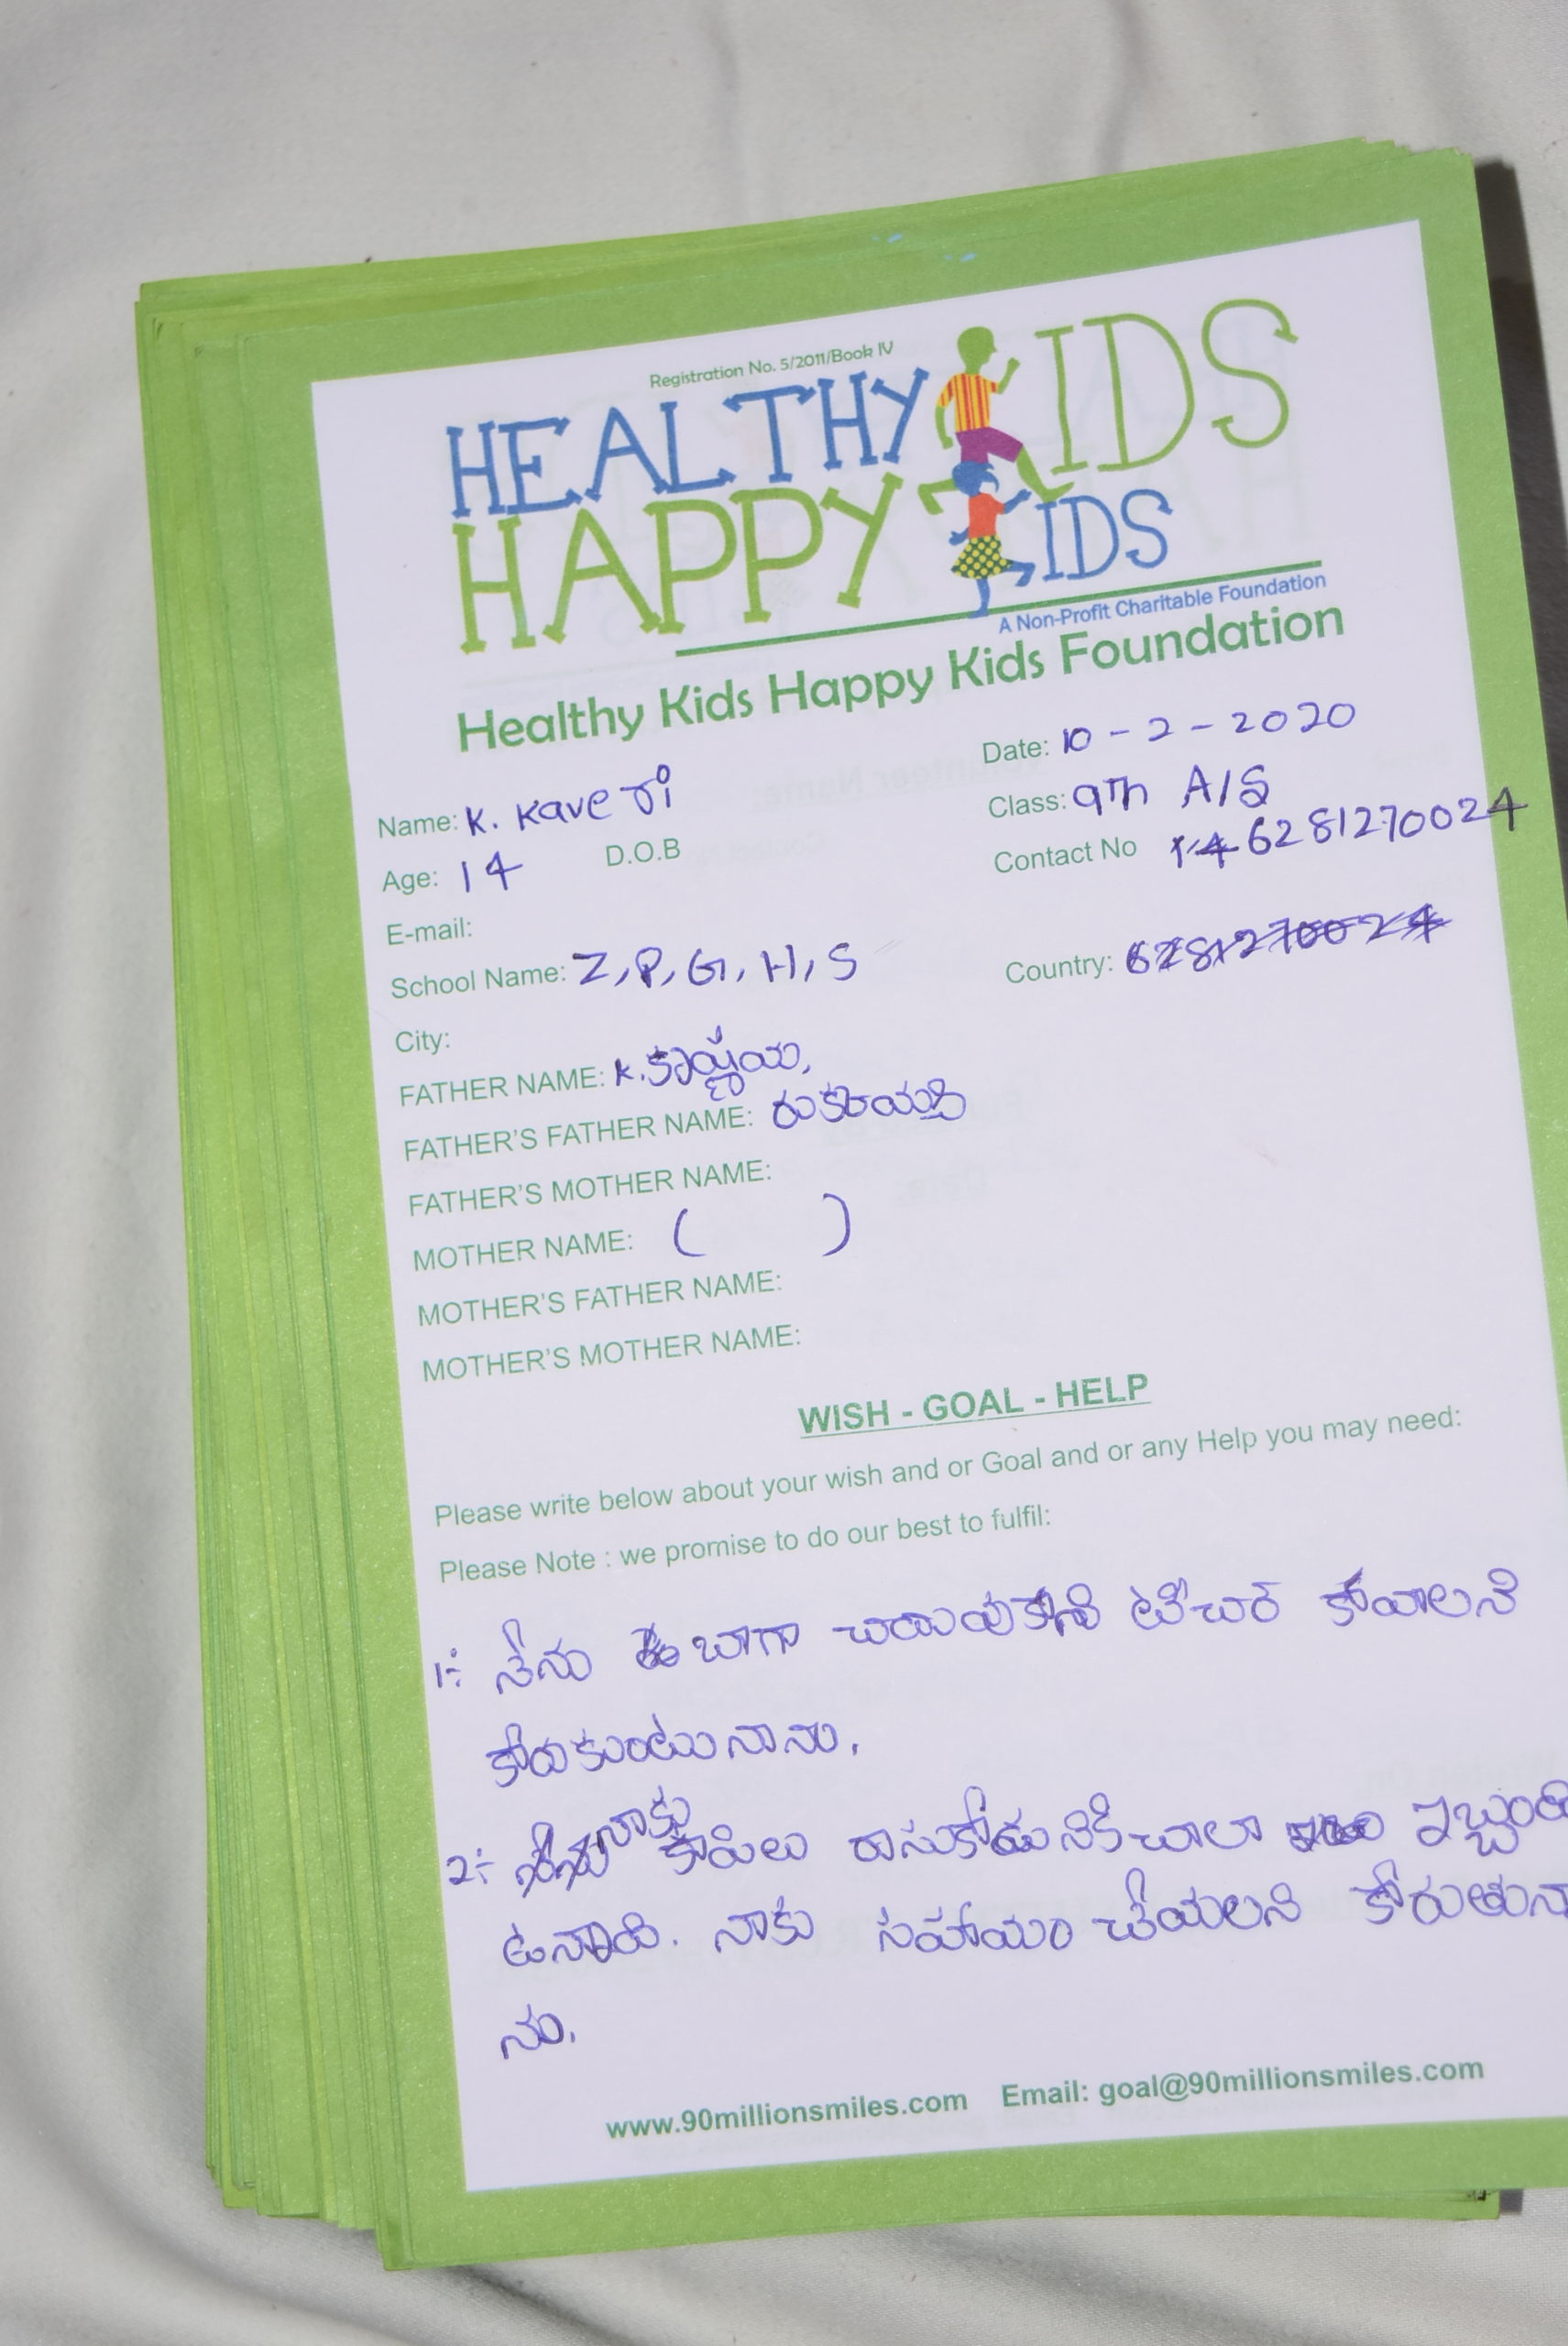 Registration No. 5/2011/Book IV
HEALTHY KIDS
HAPPY KIDS
A Non-Profit Charitable Foundation
Healthy Kids Happy Kids Foundation
Date: 10 - 2 - 2020
Name: K. Kaveri
Class: 9Th A/S
Age: 14 D.O.B
Contact No 14 6281270024
E-mail:
School Name: Z, P, G, H, S
Country: 6281270024
City:
FATHER NAME: K.
FATHER'S FATHER NAME:
FATHER'S MOTHER NAME:
MOTHER NAME: ( )
MOTHER'S FATHER NAME:
MOTHER'S MOTHER NAME:
WISH - GOAL - HELP
Please write below about your wish and or Goal and or any Help you may need:
Please Note : we promise to do our best to fulfil:
1:- నేను బాగా చదువుకోని టీచర్ కావాలని
కోరుకుంటునాను.
2:- నాకు కాపిలు రాసుకోడునికి చాలా ఇబ్బంతి
ఉన్నాది. నాకు సహాయం చేయలని కోరుతునా
ను.
www.90millionsmiles.com Email: goal@90millionsmiles.com